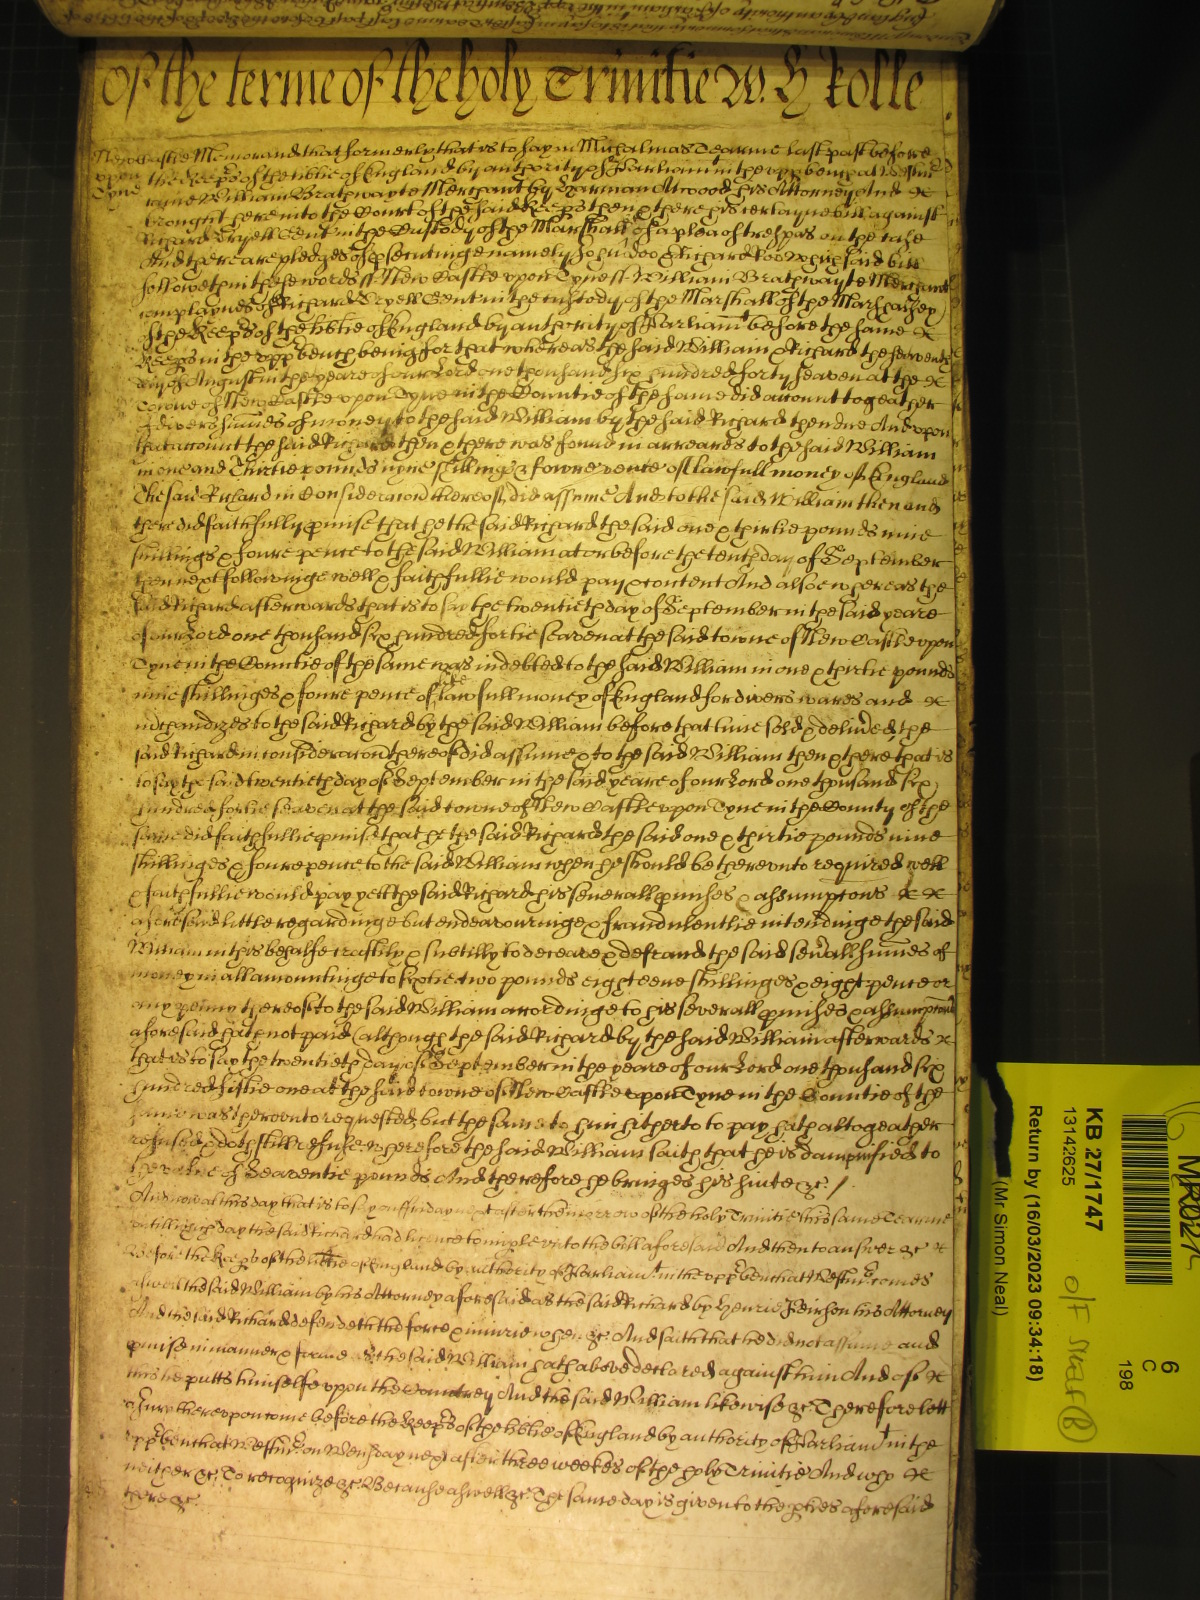 Of the terme of the holy Trinitie W. H Rolle
NewCastle Memorand that formerly that is to say in Michalmas Tearme last past before
upon the Keeps of the libtie of England by authority of Parliamt in the upp bench at Westmr
Tyne came William Brathwayte Merchant by Harman Atwood his Attorney And &c
brought here into the Court of the said Keeps then & there his certayne bill against
Richard Tryell Gent in the Custody of the Marshall &c of a plea of trespas on the case
And there are pledges of psecutinge namely John Doo & Richard Roo Which said bill
followeth in these words ss New Castle upon Tyne ss William Brathwayte Merchant
complaynes of Richard Tryell Gent in the custody of the Marshall of the Marshalsey
of the Keeps of the libtie of England by authority of Parliamt before the same &c
Keeps in the upp bench beinig for that whereas the said William & Richard the seaventh
day of August in the yeare of our Lord one thousand six hundred forty seaven at the &c
Towne of New Castle upon Tyne in the Countie of the same did account togeather
of divers sumes of money to the said William by the said Richard then due And upon
that account the said Richard then & there was found in arreares to the said William
in one and Thirtie pounds nyne shillings & fowre pence of lawfull money of England
The said Richard in Consideracon thereof did assume And to the said William then and
there did faithfully pmise that he the said Richard the said one & thirtie pounds nine
shillings & foure pence to the said William at or before the tenth day of September
then next followinge well & faithfullie would pay & content And alsoe whereas the
said Richard afterwards that is to say the twentieth day of September in the said yeare
of our Lord one thousand six hundred fortie seaven at the said towne of New Castle upon
Tyne in the Countie of the same was indebted to the said William in one & thirtie pounds
nine shillinges & foure pence of like lawfull money of England for divers wares and &c
mchandizes to the said Richard by the said William before that time sold & delived the
said Richard in consideracon thereof did assume & to the said William then & there that is
to say the said twentieth day of September in the said yeare of our Lord one thousand six
hundred fortie seaven at the said towne of New Castle upon Tyne in the County of the
same did faithfullie pmise that he the said Richard the said one & thirtie pounds nine
shillinges & foure pence to the said William when he should be thereunto required well
& faithfullie would pay yett the said Richard his severall pmises & assumptons &c &c
aforesaid little regardinge but endeavouringe & fraudulentlie intendinge the said
William in this behalfe craftily & subtilly to deceave & defraud the said sevall sumes of
money in all amountinge to sixtie two pounds eighteene shillinges & eight pence or
any penny thereof to the said William accordinge to his severall pmises & assumptons
aforesaid hath not paid (although the said Richard by the said William afterwards &c
that is to say the twentieth day of September in the yeare of our Lord one thousand six
hundred fiftie one at the said towne of New Castle upon Tyne in the Countie of the
same was thereunto requested, but the same to him hitherto to pay hath altogeather
refused & doth still refuse wherefore the said William saith that he is damnified to
the value of Seaventie pounds And therefore he bringes his suite &c /
And now at this day that is to say on ffriday next after the morrow of the holy Trinitie this same Tearme
untill which day the said Richard had licence to imple unto the bill aforesaid And then to answer &c &c
Before the Keeps of the libtie of England by authority of Parliamt in the upp bench at Westmr comes
aswell the said William by his Attorney aforesaid as the said Richard by Henrie Peirson his Attorney
And the said Richard defendeth the force & iniurie when &c And saith that he did not assume and
pmise in manner & forme as the said William hath above declared against him And of &c
this he putts himselfe upon the Countrey And the said William likewise &c Therefore lett
a Jury thereupon come before the Keeps of the libtie of England by authority of Parliamt in the
upp bench at Westmr on Wensday next after three weekes of the holy Trinitie And who &c
neither &c To recognize &c Because aswell &c The same day is given to the pties aforesaid
there &c
KB 27/1747
13142625
Return by (16/03/2023 09:34:18)
(Mr Simon Neal)
6
C
198